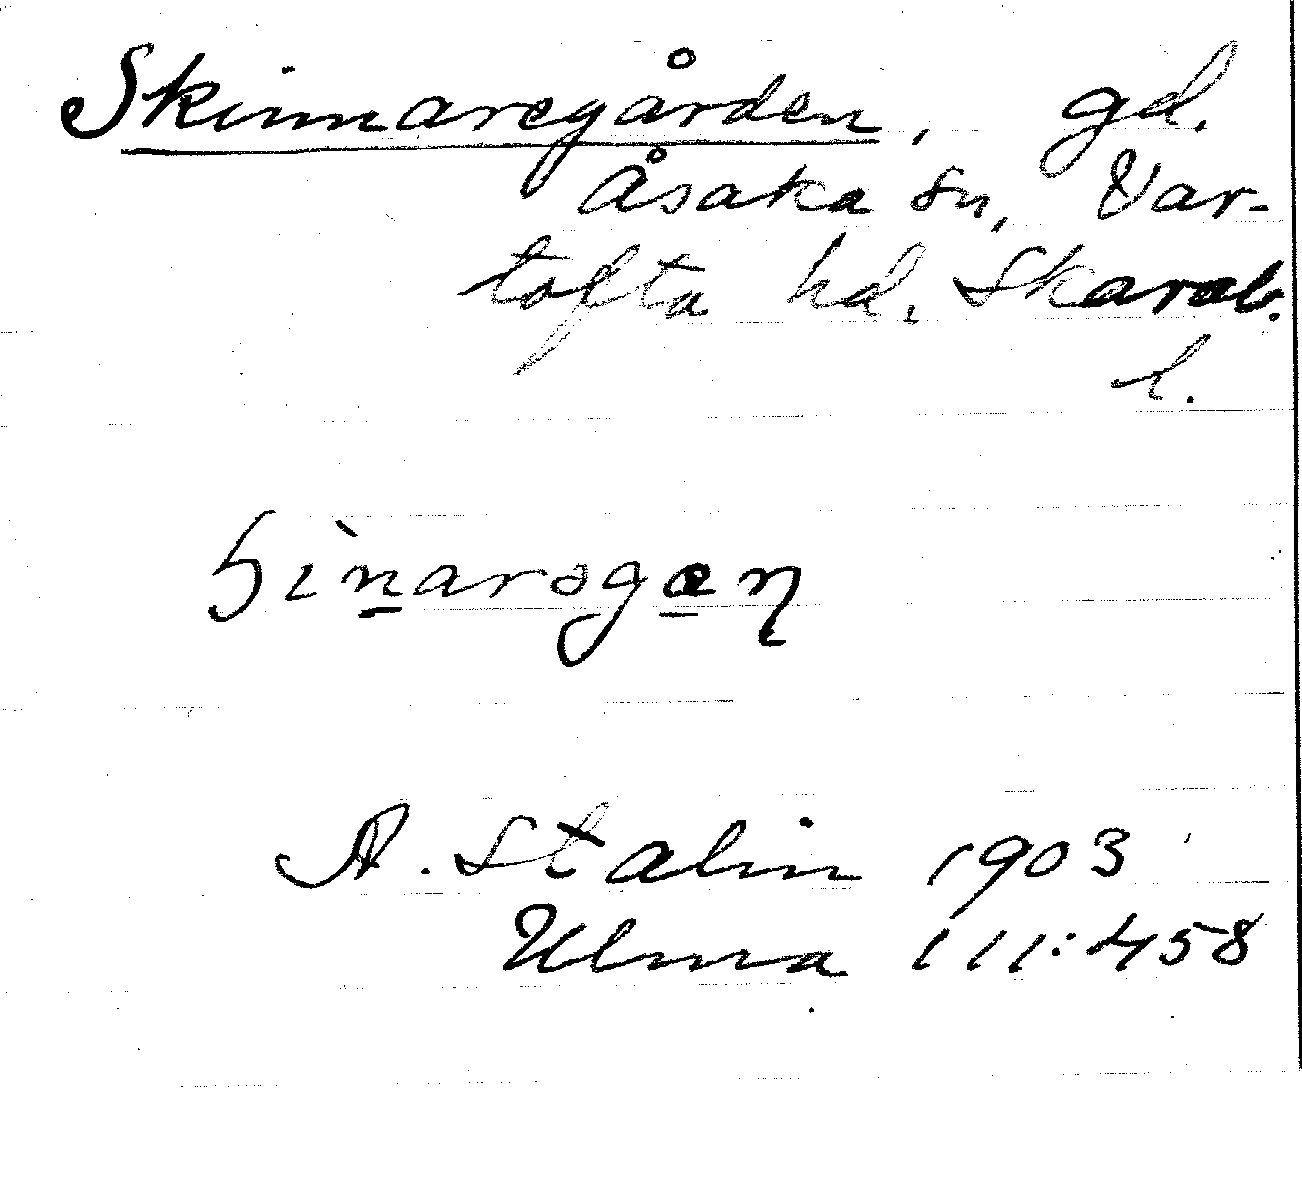 Skinnaregården, gd.
Åsaka sn, Var-
tofta hd, Skarab.
l.
A. Stalin 1903
Ulma 111:458